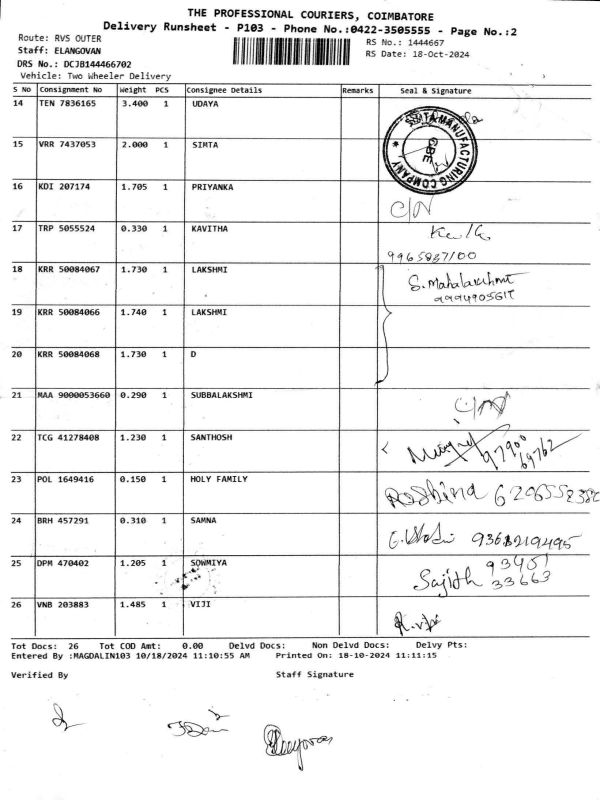 THE PROFESSIONAL COURIERS, COIMBATORE
Delivery Runsheet - P103 - Phone No.:0422-3505555 - Page No.:2
Route: RVS OUTER RS No.: 1444667
Staff: ELANGOVAN RS Date: 18-Oct-2024
DRS No.: DCJB144466702
Vehicle: Two Wheeler Delivery
S No Consignment No Weight PCS Consignee Details Remarks Seal & Signature
14 TEN 7836165 3.400 1 UDAYA
SIMTA MANUFACTURING COMPANY
CBE
15 VRR 7437053 2.000 1 SIMTA
16 KDI 207174 1.705 1 PRIYANKA
C/N
17 TRP 5055524 0.330 1 KAVITHA
9965837100
18 KRR 50084067 1.730 1 LAKSHMI S. Mahalakshmi
9994905617
19 KRR 50084066 1.740 1 LAKSHMI
20 KRR 50084068 1.730 1 D
21 MAA 9000053660 0.290 1 SUBBALAKSHMI C/N
22 TCG 41278408 1.230 1 SANTHOSH 97900
69762
23 POL 1649416 0.150 1 HOLY FAMILY Roshina
24 BRH 457291 0.310 1 SAMNA
25 DPM 470402 1.205 1 SOWMIYA Sajith 93401
33663
26 VNB 203883 1.485 1 VIJI
Tot Docs: 26 Tot COD Amt: 0.00 Delvd Docs: Non Delvd Docs: Delvy Pts:
Entered By :MAGDALIN103 10/18/2024 11:10:55 AM Printed On: 18-10-2024 11:11:15
Verified By Staff Signature